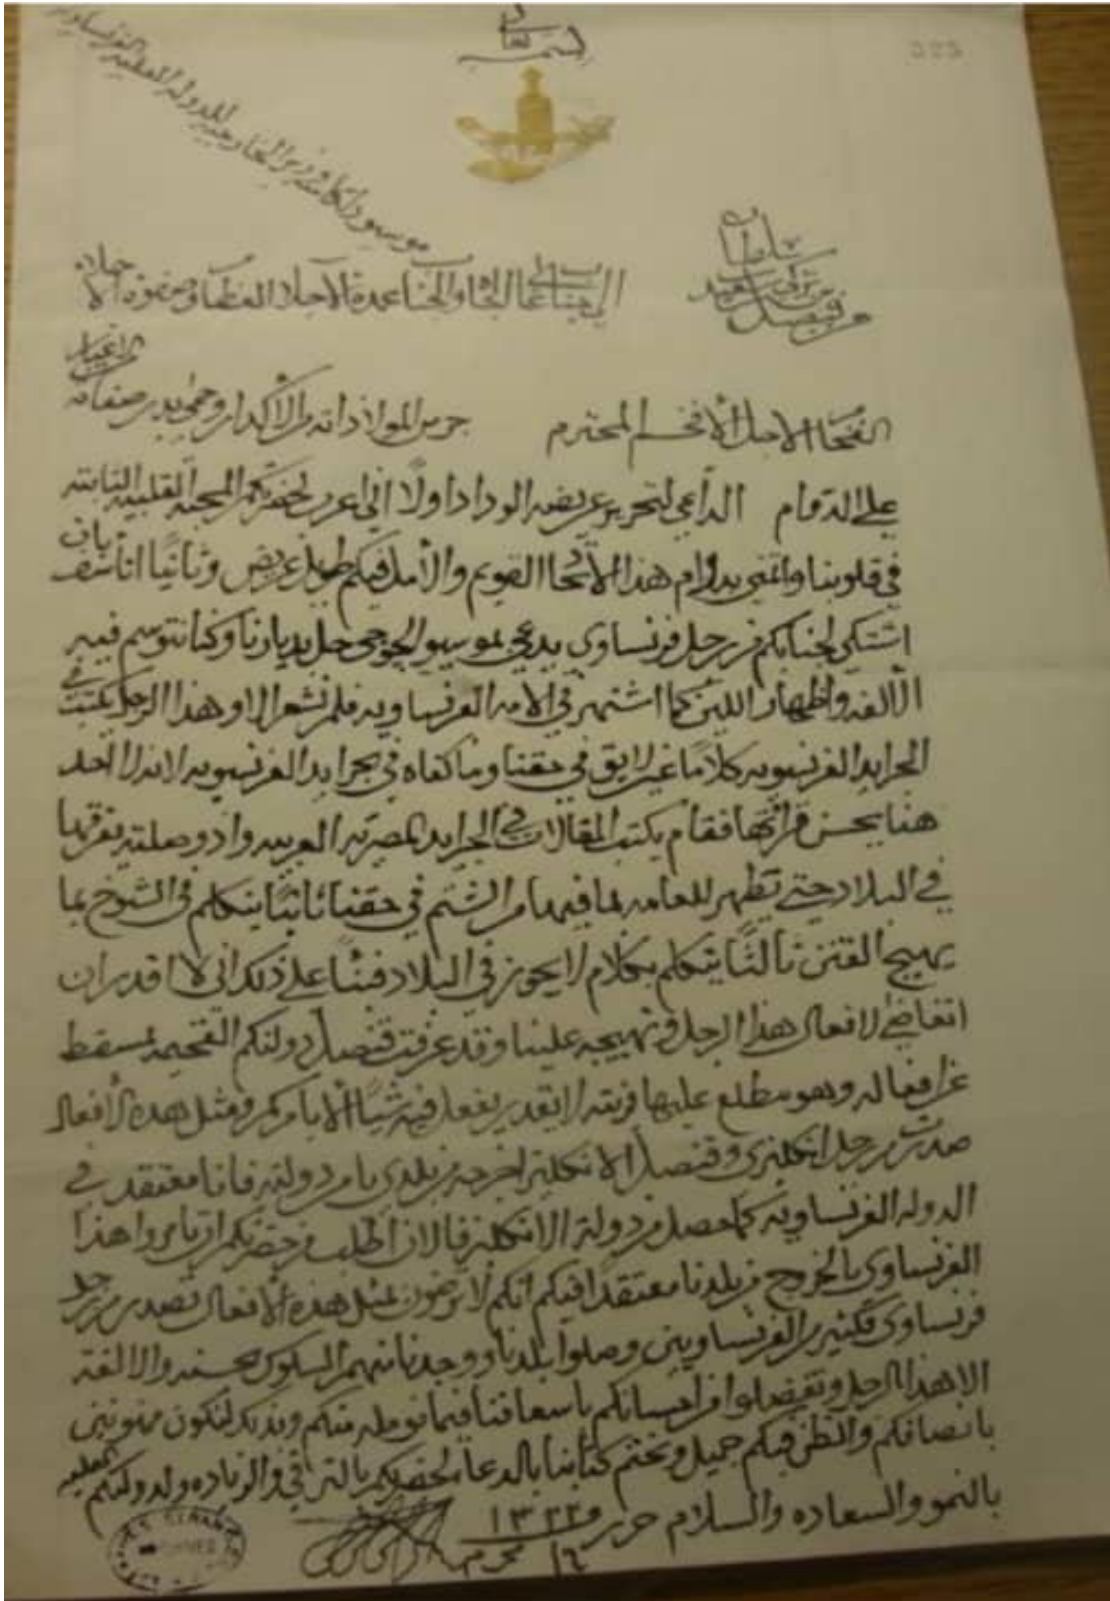 بسمه تعالى
من فيصل بن تركي سلطان
الى جناب عالي الجاه والجناب عمدة الاجلاء العظام وصفوة
الفخام الاجل الأفخم المحترم حرس المولا ذاته من الأكدار وحمى صفاته
على الدوام الداعي لتحرير عريضة الوداد اولاً اني اعرب لحضرتكم المحبة القلبية الثابتة
في قلوبنا واتمنى بدوام هذا الاتحاد القويم والأمل فيكم طويل عريض وثانياً اتأسف بان
اشتكي لجنابكم من رجل فرنساوي يدعى بموسيو حل بديارنا وكنا نتوسم فيه
الألفة واظهار اللين كما اشتهر في الامة الفرنساوية فلم نشعر الا وهذا الرجل يكتب في
الجرايد الفرنسويه كلاماً غير لايق في حقنا وما كفاه في جرايد الفرنسويه لانه لا احد
هنا يحسن قرائتها فقام يكتب المقالات في الجرايد المصريه العربيه واذ وصلته يفرقها
في البلاد حتى تظهر للعامه بما فيها من الشتم في حقنا ثانياً يتكلم في الشيوخ بما
يهيج الفتن ثالثاً يتكلم بكلام لا يجوز في البلاد فبناً على ذلك اني لا اقدر ان
اتغاضى لافعال هذا الرجل وتهييجه علينا وقد عرفت قنصل دولتكم الفخيمه بمسقط
عن افعاله وهو مطلع عليها فريته لا يقدر يفعل فيه شياً الا بامركم ومثل هذه الأفعال
صدرت من رجل انكليزي وقنصل الانكليز اخرجه من بلدي بامر دولته فانا معتقد في
الدوله الفرنساويه كما حصل من دولة الانكليز فالان اطلب من حضرتكم ان تامروا هذا
الفرنساوي بالخروج من بلدنا معتقداً فيكم انكم لا ترضون بمثل هذه الأفعال تصدر من رجل
فرنساوي فكثير من الفرنساويين وصلوا بلدنا ووجدنا منهم السلوك بحسنه والالفة
الا هذا الرجل وتفضلوا من احسانكم باسعافنا فيما نومله منكم وبذلك لنكون ممنونين
بانصافكم والظن فيكم جميل ونختم كتابنا بالدعا لحضرتكم بالترقي والزياده ولدولتكم العليه
بالنمو والسعاده والسلام حرر ١٦ محرم ١٣٢٢